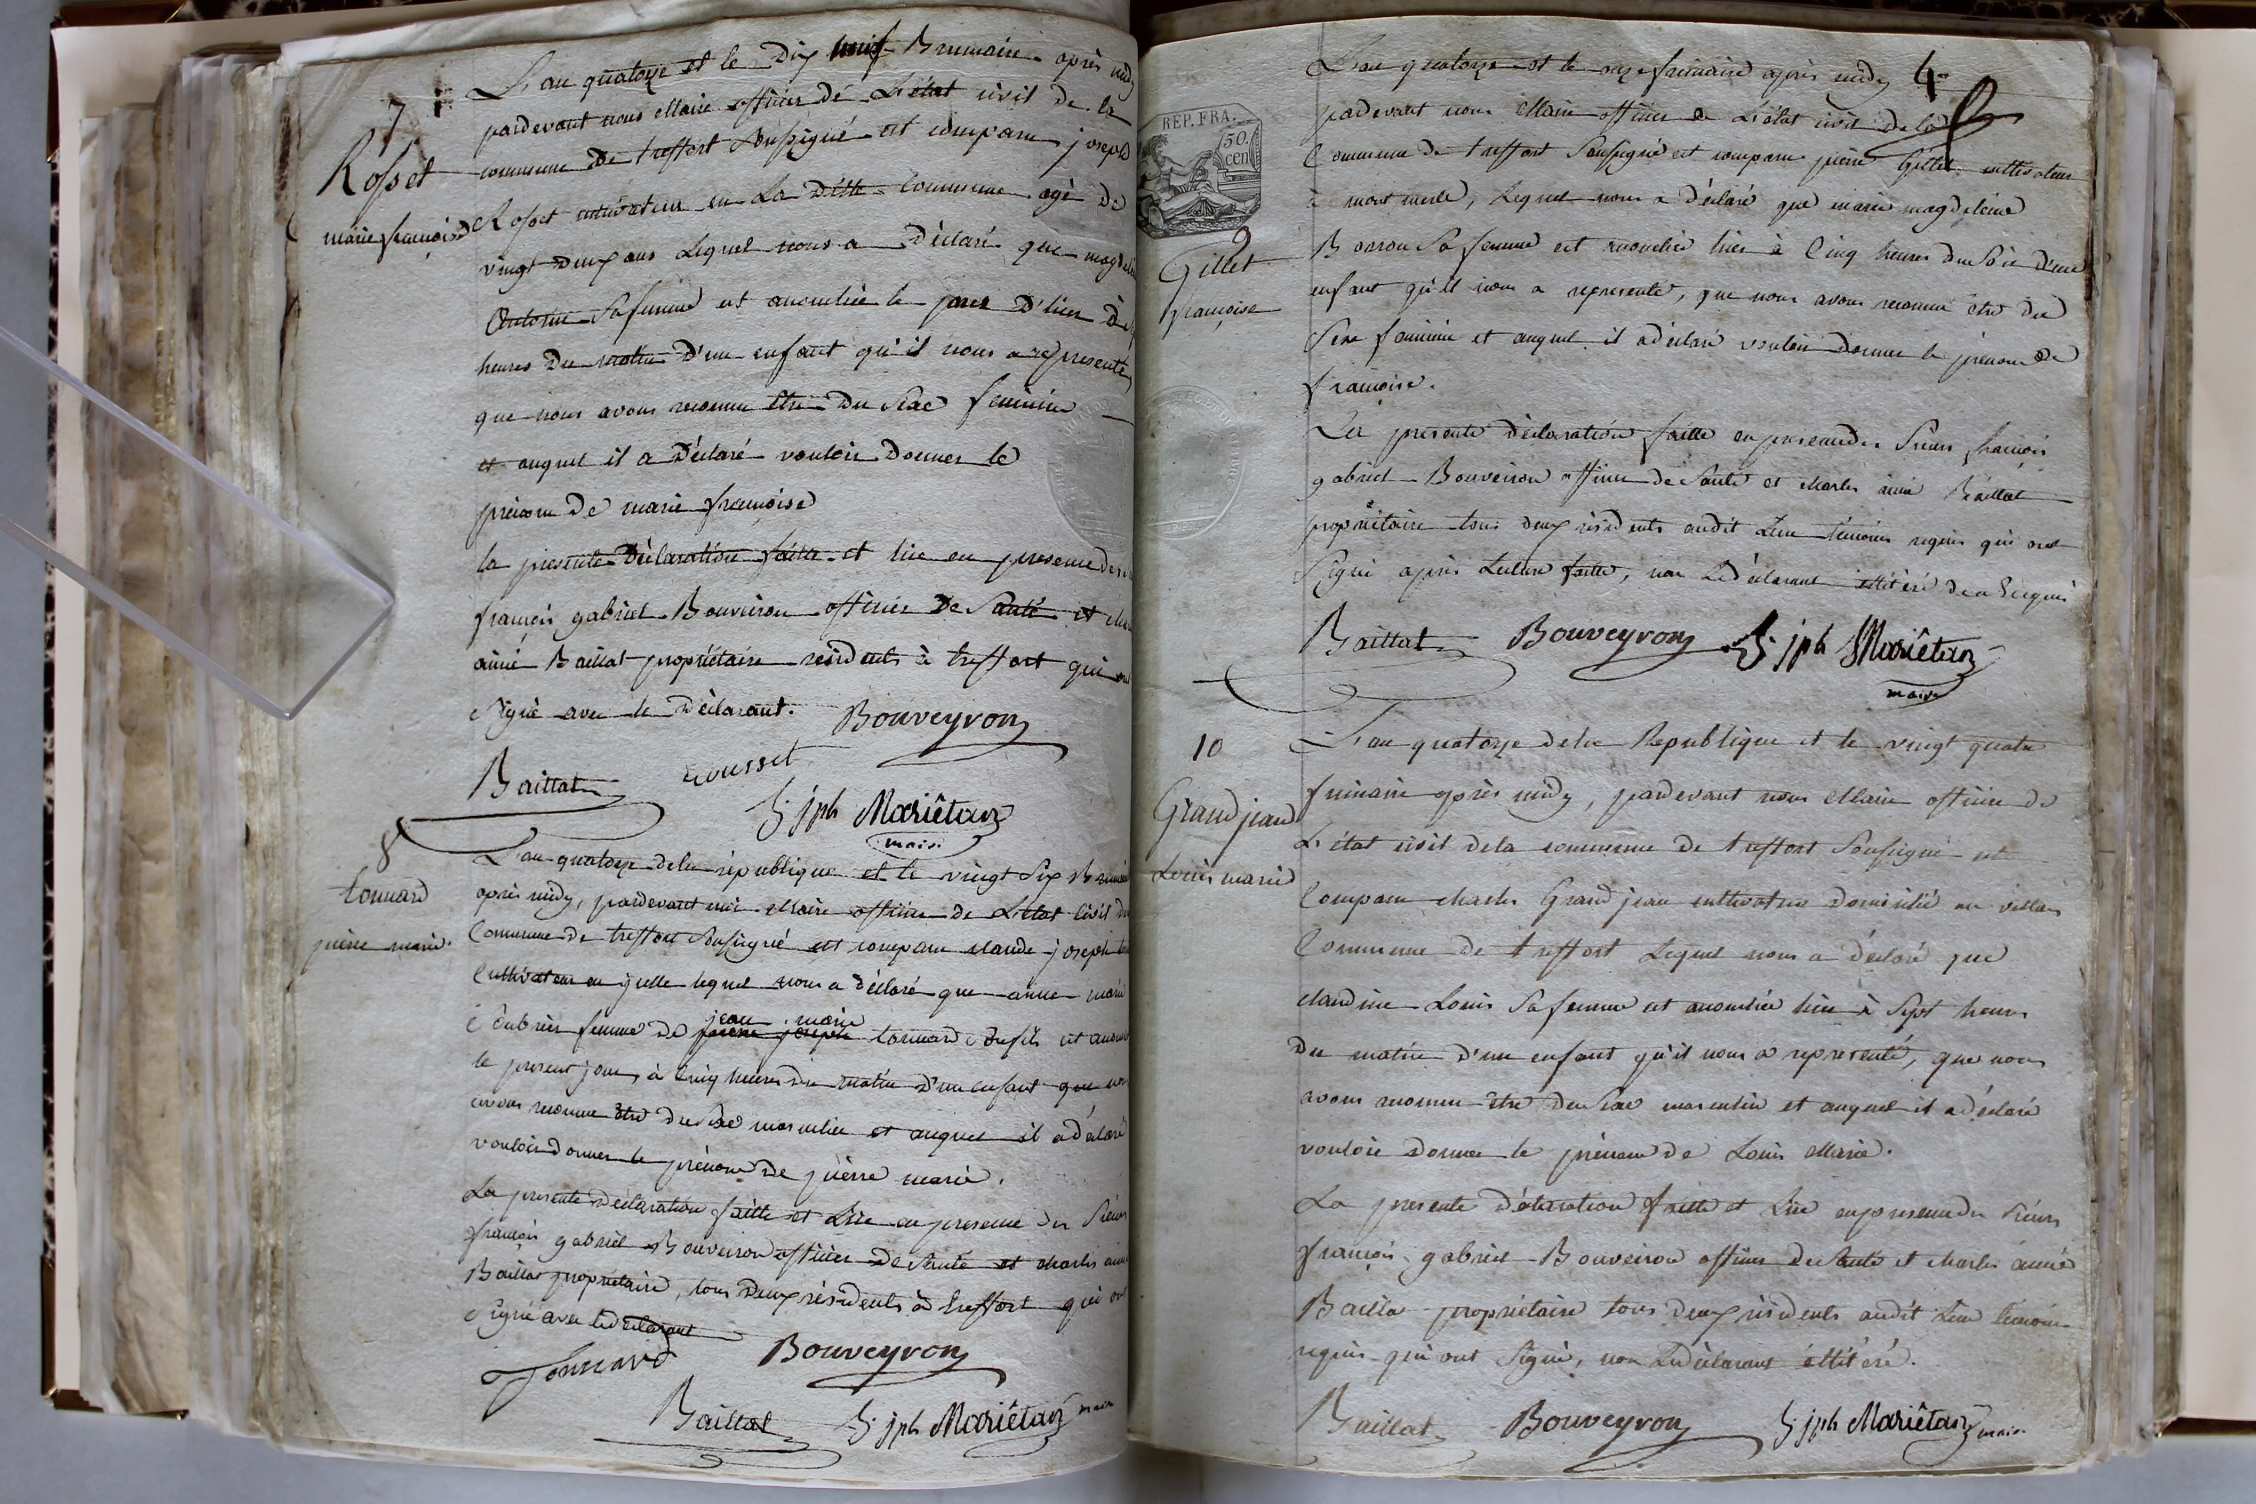 7
Rosset
marie françoise
L'an quatorze et le Dix neuf Brumaire après midy
pardevant nous Maire officier de L'état civil de la
commune de treffort Soussigné est comparu joseph
Rosset cultivateur en La ditte Commune agé de
vingt deux ans Lequel nous a Déclaré que
Sa femme est accouchée le jour D'hier à
heures Du matin D'un enfant qu'il nous a representé
que nous avons reconnu être Du Sexe feminin
et auquel il a Déclaré vouloir Donner le
prénom De marie françoise
la presente Déclaration faitte et lüe en presence des
françois gabriel Bouveiron officier De Santé et
aimé Baillat propriétaire residents à treffort qui ont
Signé avec le Déclarant.
Bouveyron
Baillat Rousset
jph Mariêtan
maire
8
tonnard
pierre marie.
L'an quatorze de la république et le vingt Six Brumaire
après midy, pardevant nous Maire officier de L'état Civil de
Commune de treffort Soussigné est comparu claude joseph
Cultivateur en lequel nous a déclaré que anne marie
femme de jean marie tonnard Son fils est
le present jour, à Cinq heures du matin D'un enfant que nous
avons reconnu être du Sexe masculin et auquel il a déclaré
vouloir donner le prénom De pierre marie.
La presente Déclaration faitte et Lüe en presence des Sieurs
françois gabriel Bouveiron officier De Santé et charles aimé
Baillat propriétaire, tous Deux résidents à treffort qui ont
Signé avec le déclarant
Tonnard Bouveyron
Baillat jph Mariêtan maire
4
REP. FRA.
50.
cen
9
Gillet
françoise
L'an quatorze et le onze frimaire après midy
pardevant nous Maire officier de L'état civil de la
Commune de treffort Soussigné est comparu pierre Gillet cultivateur
à mont merle, Lequel nous a déclaré que marie magdeleine
Sa femme est accouchée hier à Cinq heures du Soir D'un
enfant qu'il nous a representé, que nous avons reconnu être du
Sexe feminin et auquel il a déclaré vouloir Donner le prenom De
françoise.
La presente déclaration faitte en presence des Sieurs françois
gabriel Bouveiron officier de Santé et charles aimé Baillat
propriétaire tous deux résidents audit Lieu témoins requis qui ont
Signé après Lecture faitte, non Le déclarant illitéré de ce Enquis
Baillat Bouveyron jph Mariêtan
maire
10
Grandjean
Louis marie
L'an quatorze de la Republique et le vingt quatre
frimaire après midy, pardevant nous Maire officier de
L'état civil de la commune de treffort Soussigné est
Comparu charles Grandjean cultivateur domicilié au
Commune de treffort Lequel nous a déclaré que
claudine Louis Sa femme est accouchée hier à Sept heures
Du matin D'un enfant qu'il nous a representé, que nous
avons reconnu être du Sexe masculin et auquel il a déclaré
vouloir donner le prénom de Louis Marie.
La presente déclaration faitte et Lüe en presence des Sieurs
françois gabriel Bouveiron officier de Santé et charles aimé
Bailla propriétaire tous deux résidents audit Lieu témoins
requis qui ont Signé, non Le déclarant illitéré.
Baillat Bouveyron jph Mariêtan maire